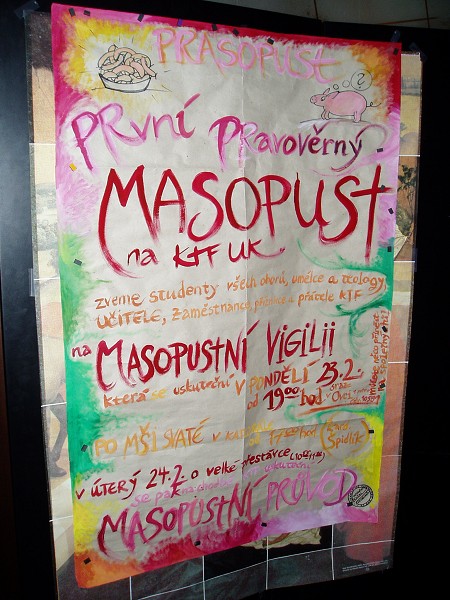 PRASOPUST
?
PRvní PRavověrný
MASOPUST
na KTF UK
zveme studenty všech oborů, umělce a teology
UČITELE, zaměstnance, příznivce a přátele KTF
na MASOPUSTNÍ VIGILII
která se uskuteční V PONDĚLÍ 23.2.
od 19:00 hod
PO MŠI SVATÉ v hod (
Špidlík)
v ÚTERÝ 24.2. o velké přestávce
se pak na uskuteční
MASOPUSTNÍ PRŮVOD